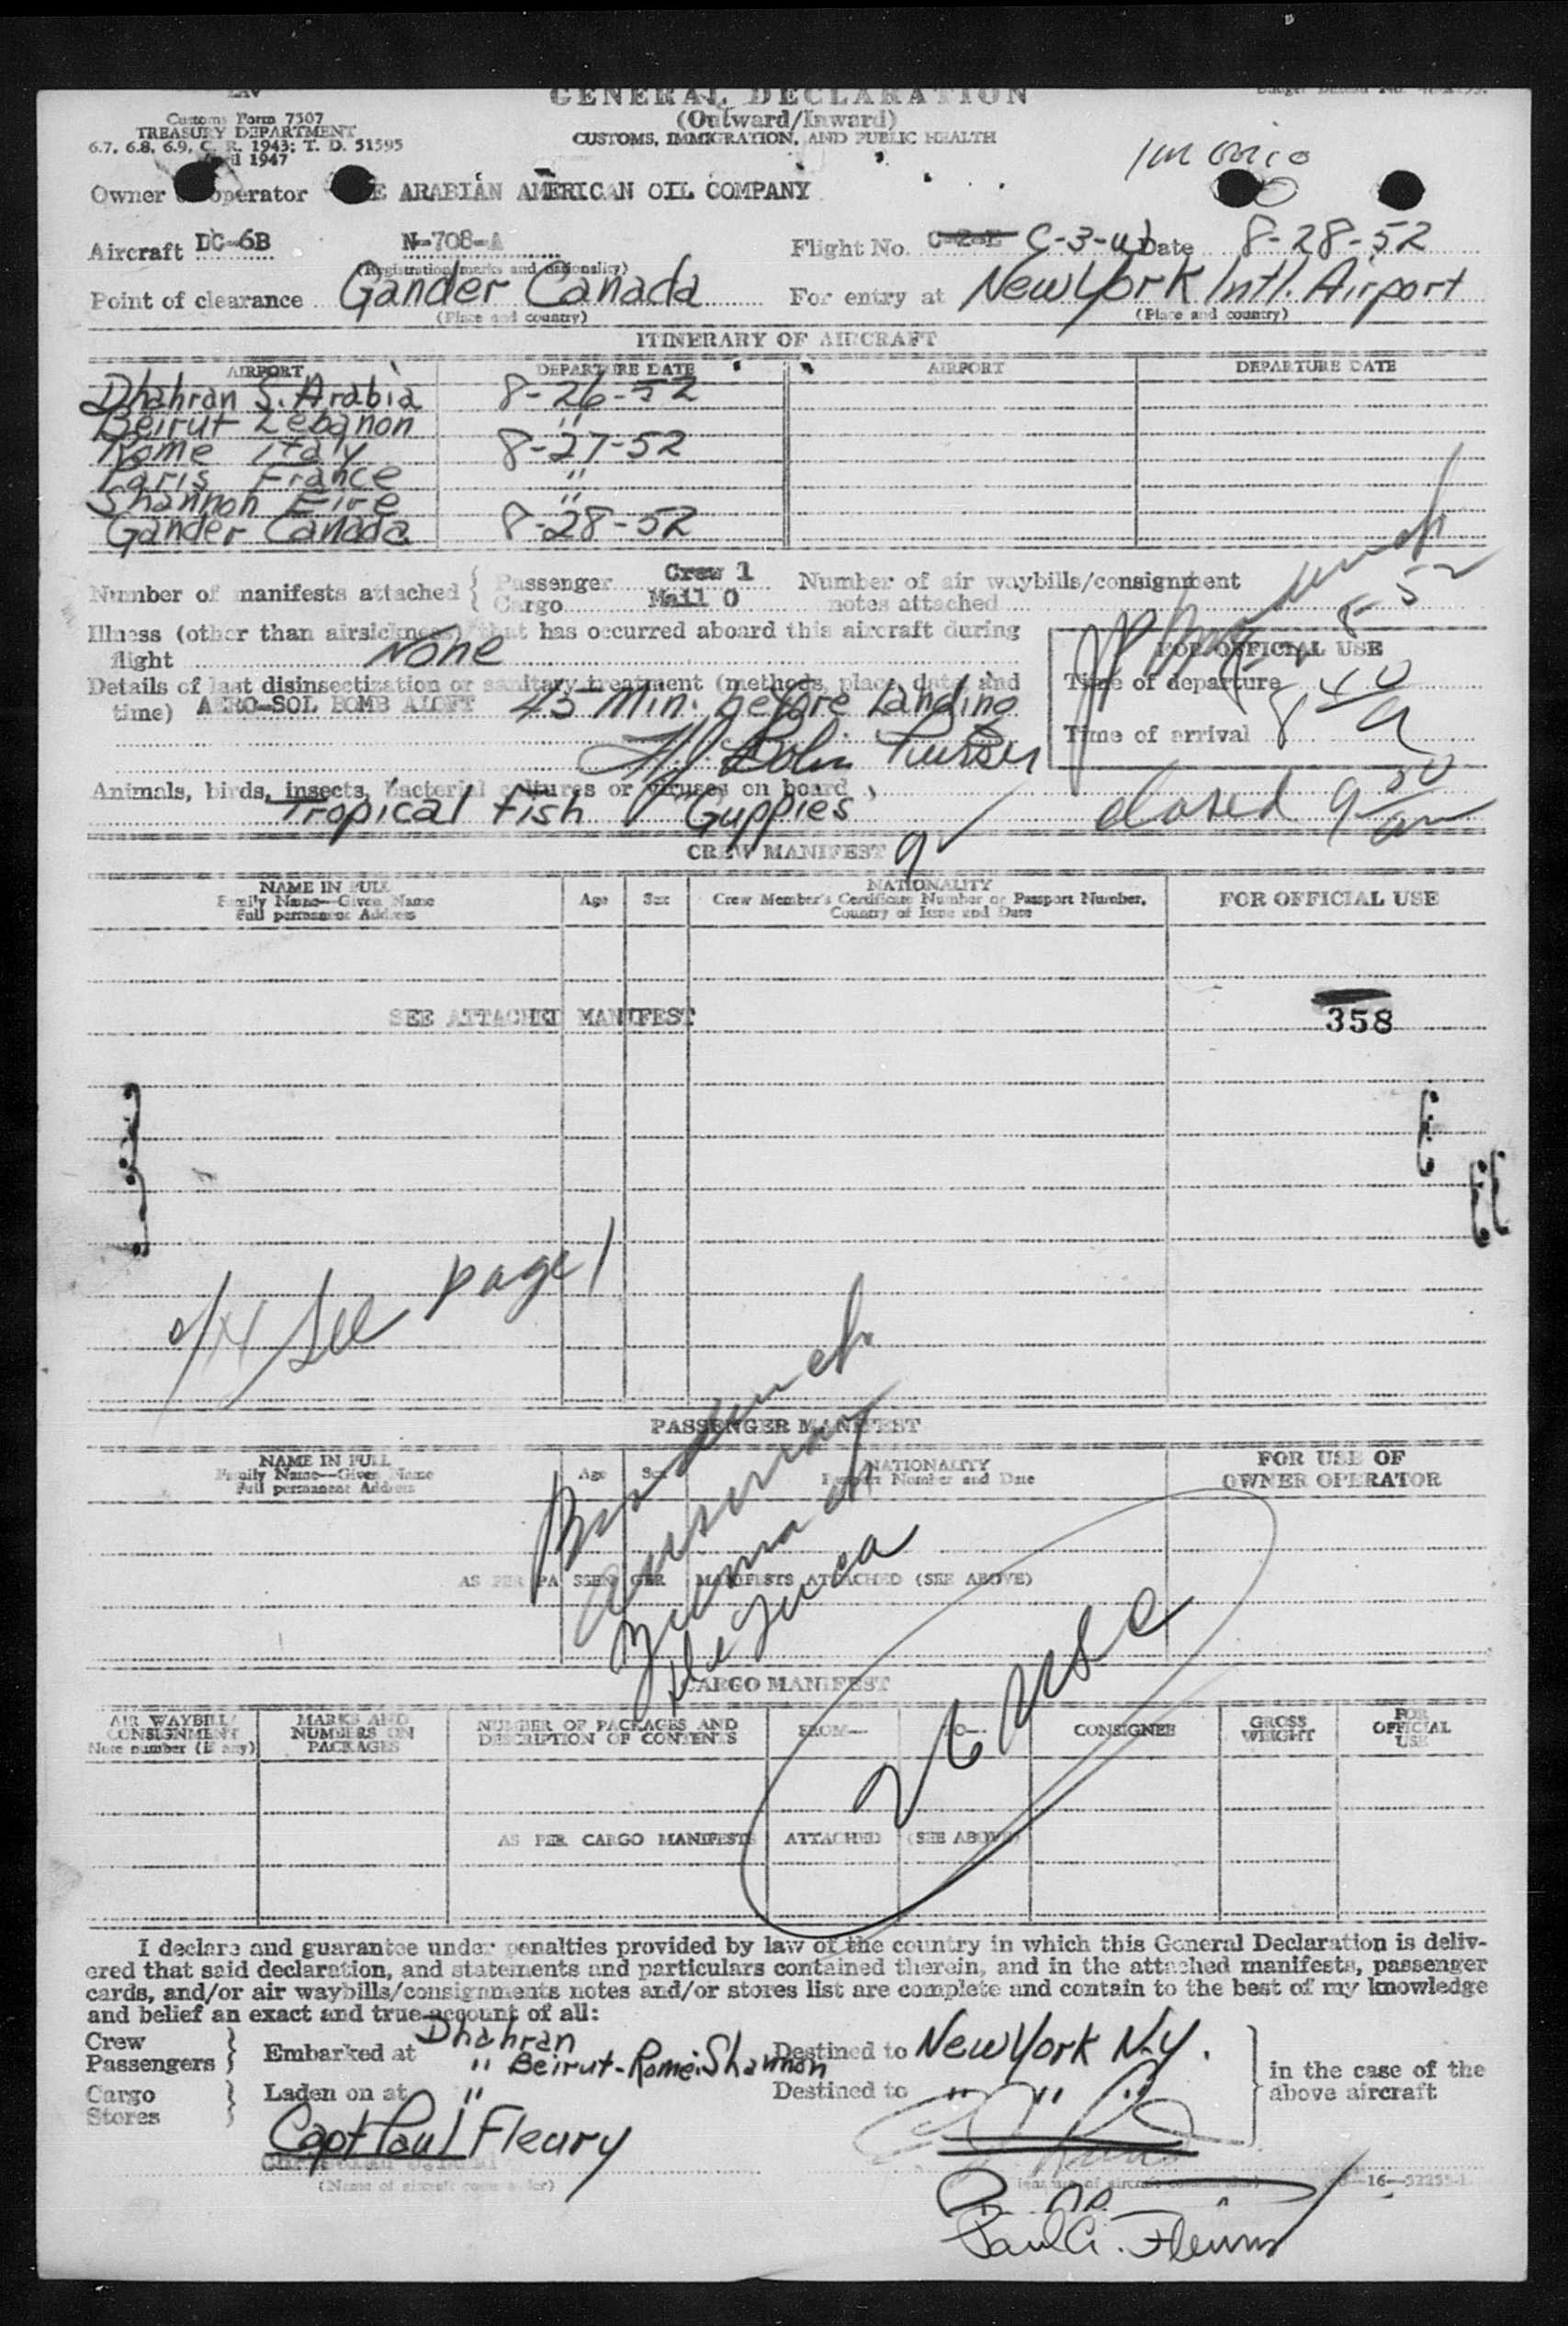 GENERAL DECLARATION
(Outward/Inward)
CUSTOMS, IMMIGRATION, AND PUBLIC HEALTH
Customs Form 7507
TREASURY DEPARTMENT
6.7, 6.8, 6.9, C. R. 1943; T. D. 51595
April 1947
Owner or operator THE ARABIAN AMERICAN OIL COMPANY
Aircraft DC-6B N-708-A Flight No. C-3-W Date 8-28-52
(Registration marks and nationality)
Point of clearance Gander Canada For entry at New York Intl. Airport
(Place and country) (Place and country)
ITINERARY OF AIRCRAFT
AIRPORT DEPARTURE DATE AIRPORT DEPARTURE DATE
Dhahran S. Arabia 8-26-52
Beirut Lebanon "
Rome Italy 8-27-52
Paris France "
Shannon Eire "
Gander Canada 8-28-52
Number of manifests attached { Passenger Crew 1 Number of air waybills/consignment
Cargo Mail 0 notes attached
Illness (other than airsickness) that has occurred aboard this aircraft during
flight None
FOR OFFICIAL USE
Details of last disinsectization or sanitary treatment (methods, place, date and
time) AERO-SOL BOMB ALOFT 45 Min. before Landing
Time of departure
Purser
Time of arrival 8 40 a
Animals, birds, insects, bacterial cultures or viruses on board
Tropical fish Guppies
closed 9 50 am
CREW MANIFEST 9
NAME IN FULL
Family Name—Given Name
Full permanent Address
Age Sex
NATIONALITY
Crew Member's Certificate Number or Passport Number,
Country of Issue and Date
FOR OFFICIAL USE
SEE ATTACHED MANIFEST
358
See page 1
PASSENGER MANIFEST
NAME IN FULL
Family Name—Given Name
Full permanent Address
Age Sex
NATIONALITY
Passport Number and Date
FOR USE OF
OWNER OPERATOR
AS PER PASSENGER MANIFESTS ATTACHED (SEE ABOVE)
26 USC
CARGO MANIFEST
AIR WAYBILL/
CONSIGNMENT
Note number (if any)
MARKS AND
NUMBERS ON
PACKAGES
NUMBER OF PACKAGES AND
DESCRIPTION OF CONTENTS
FROM— TO— CONSIGNEE
GROSS
WEIGHT
FOR
OFFICIAL
USE
AS PER CARGO MANIFESTS ATTACHED (SEE ABOVE)
I declare and guarantee under penalties provided by law of the country in which this General Declaration is deliv-
ered that said declaration, and statements and particulars contained therein, and in the attached manifests, passenger
cards, and/or air waybills/consignments notes and/or stores list are complete and contain to the best of my knowledge
and belief an exact and true account of all:
Crew
Passengers } Embarked at Dhahran
" Beirut-Rome-Shannon
Destined to New York N.Y.
in the case of the
above aircraft
Cargo
Stores } Laden on at "
Destined to " " "
Capt Paul Fleury
(Name of aircraft commander)
(Signature of aircraft commander)
Paul G. Fleury